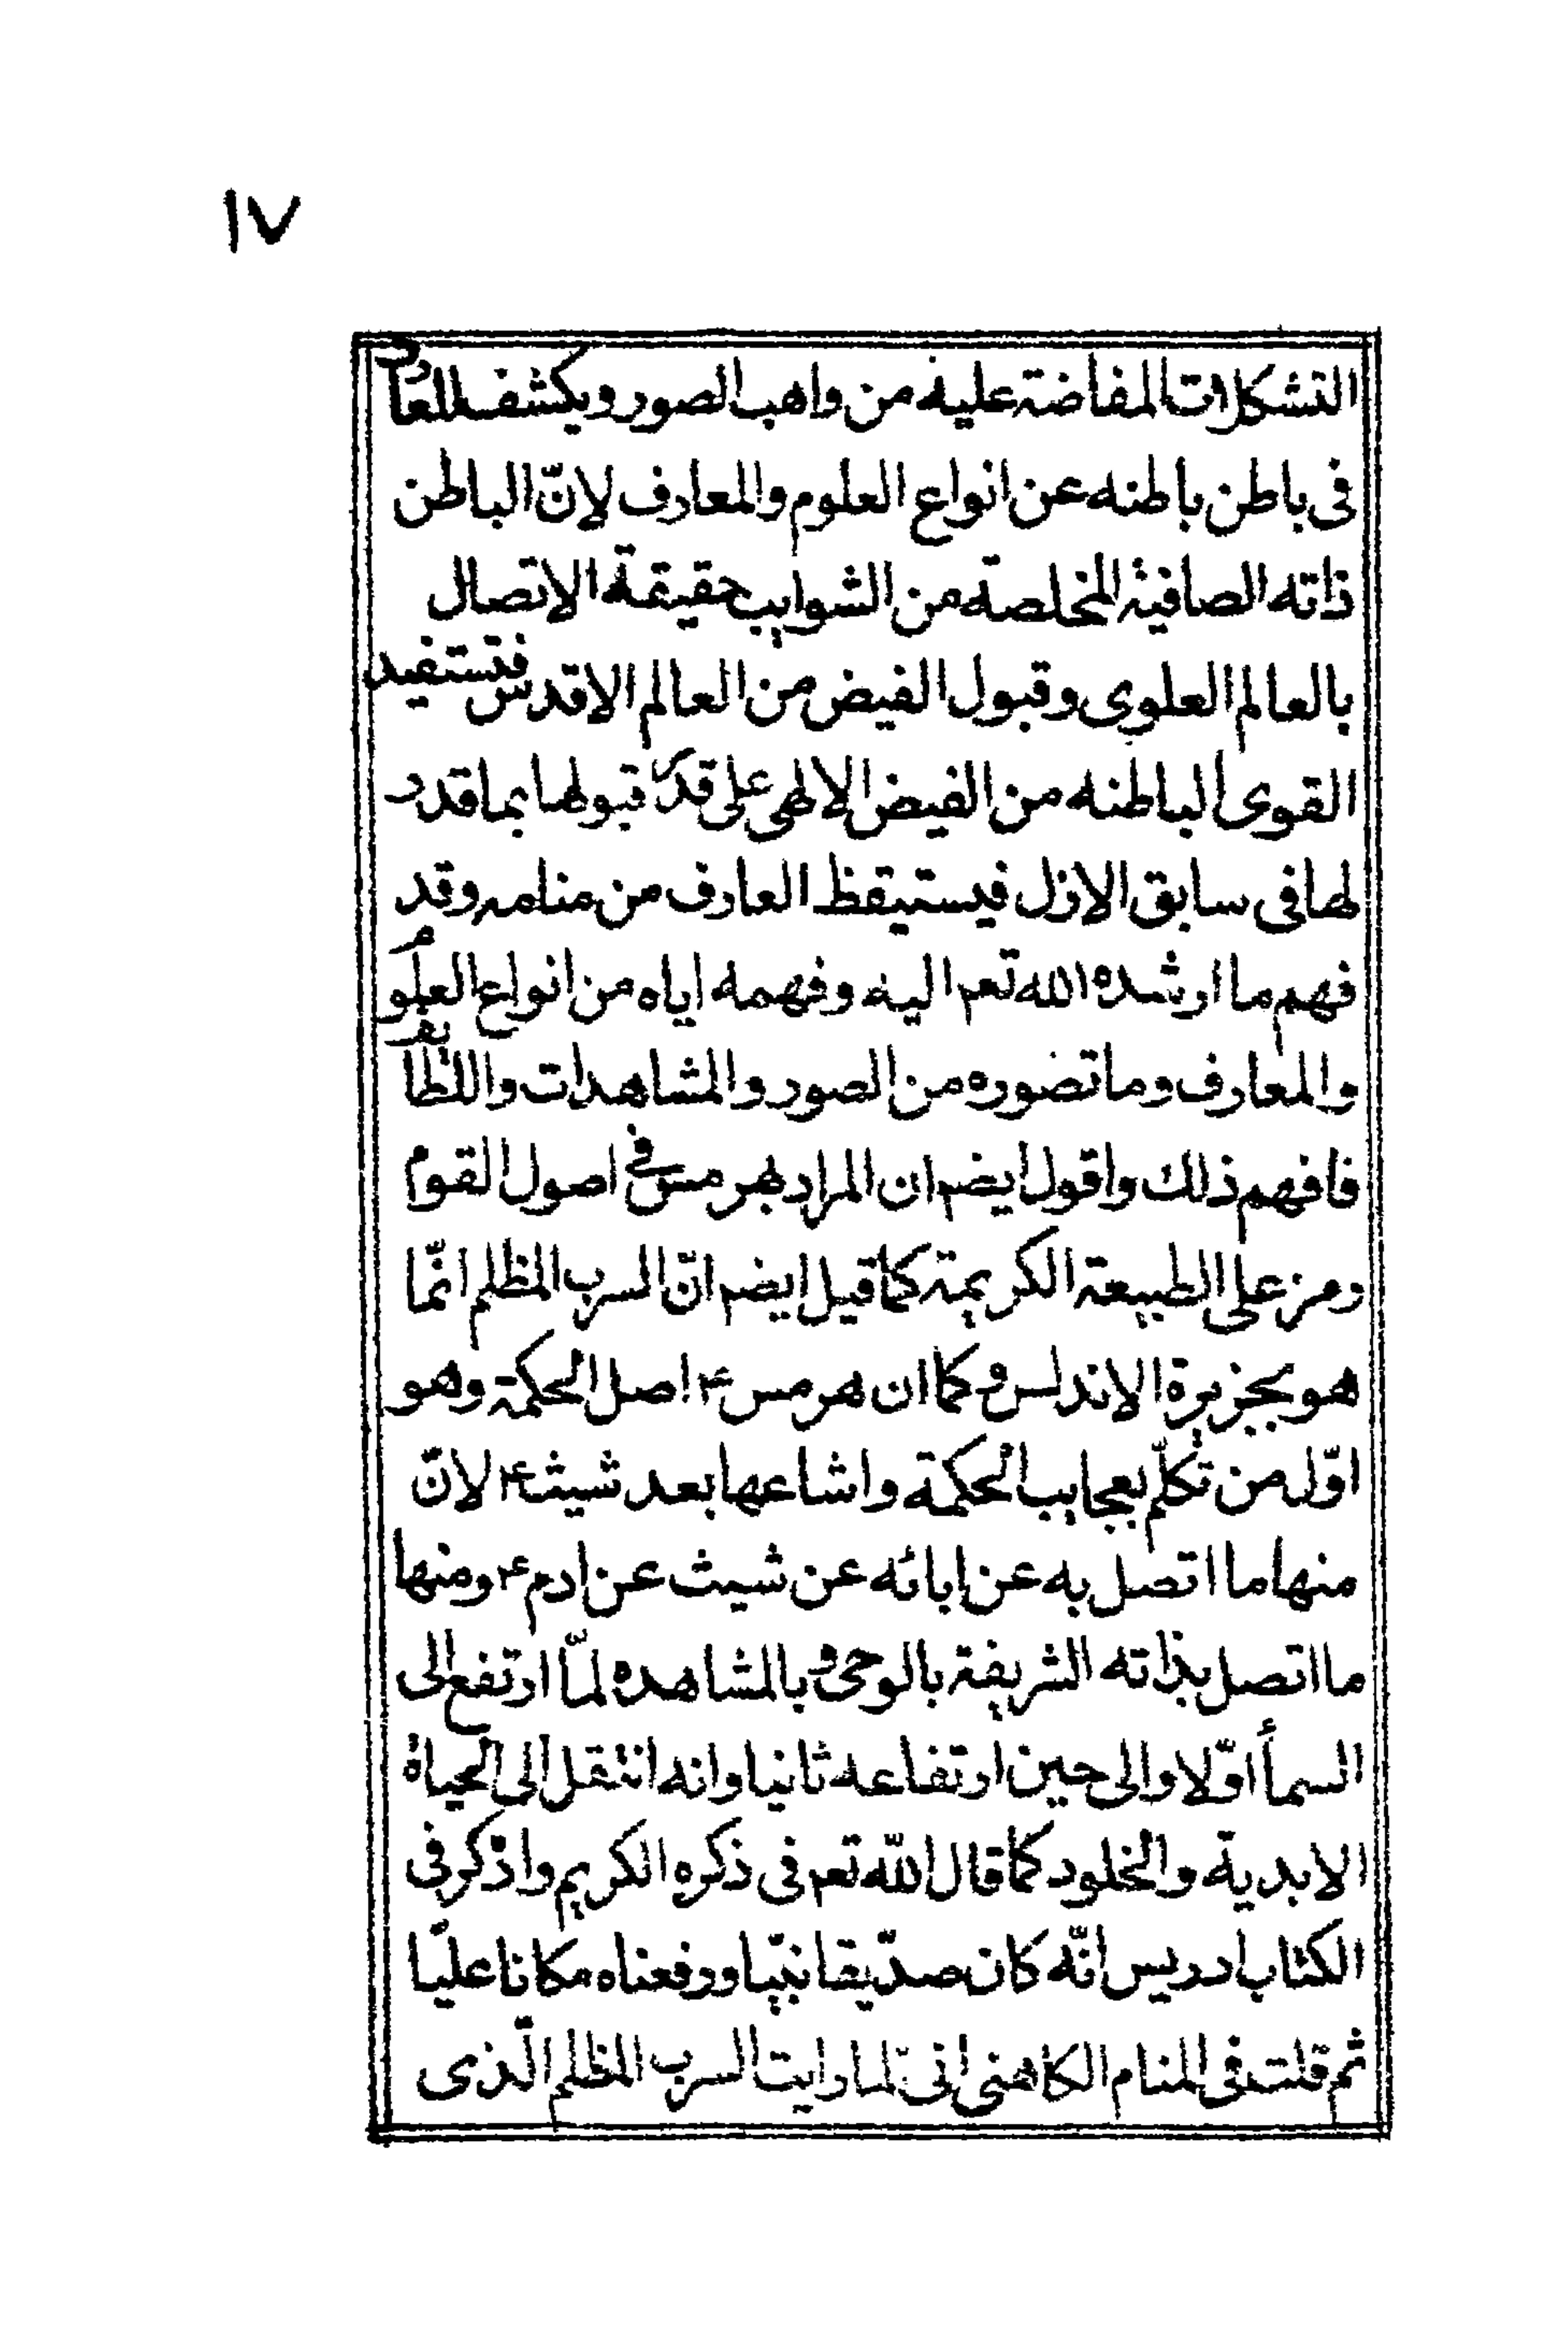 ١٧
التشكلات المفاضة عليه من واهب الصور ويكشف للعارف
فى باطن باطنه عن انواع العلوم والمعارف لانّ الباطن
ذاته الصافية المخلصة من الشوايب حقيقة الاتصال
بالعالم العلوى وقبول الفيض من العالم الاقدس فتستفيد
القوى الباطنه من الفيض الالهى على قدر قبولها بما قدر
لها فى سابق الازل فيستيقظ العارف من منامه وقد
فهم ما ارشده الله تعم اليه وفهمه اياه من انواع العلوم
والمعارف وما تضوره من الصور والمشاهدات واللطايف
فافهم ذلك واقول ايضم ان المراد بهرمس فى اصول القوم
رمز على الطبيعة الكريمة كما قيل ايضم انّ السرب المظلم انّما
هو بجزيرة الاندلس وكما ان هرمس ع اصل الحكمة وهو
اوّل من تكلّم بعجايب الحكمة واشاعها بعد شيث ع لانّ
منها ما اتصل به عن ابائه عن شيث عن ادم ع ومنها
ما اتصل بذاته الشريفة بالوحى وبالمشاهده لمّا ارتفع الى
السمأ اوّلا والى حين ارتفاعه ثانيا وانه انتقل الى الحياة
الابدية والخلود كما قال اللّه تعم فى ذكره الكريم واذكر فى
الكتاب ادريس انّه كان صدّيقا نبيّا ورفعناه مكانا عليّا
ثم قلت فى المنام الكاهنى انى لما رايت السرب المظلم الّذى